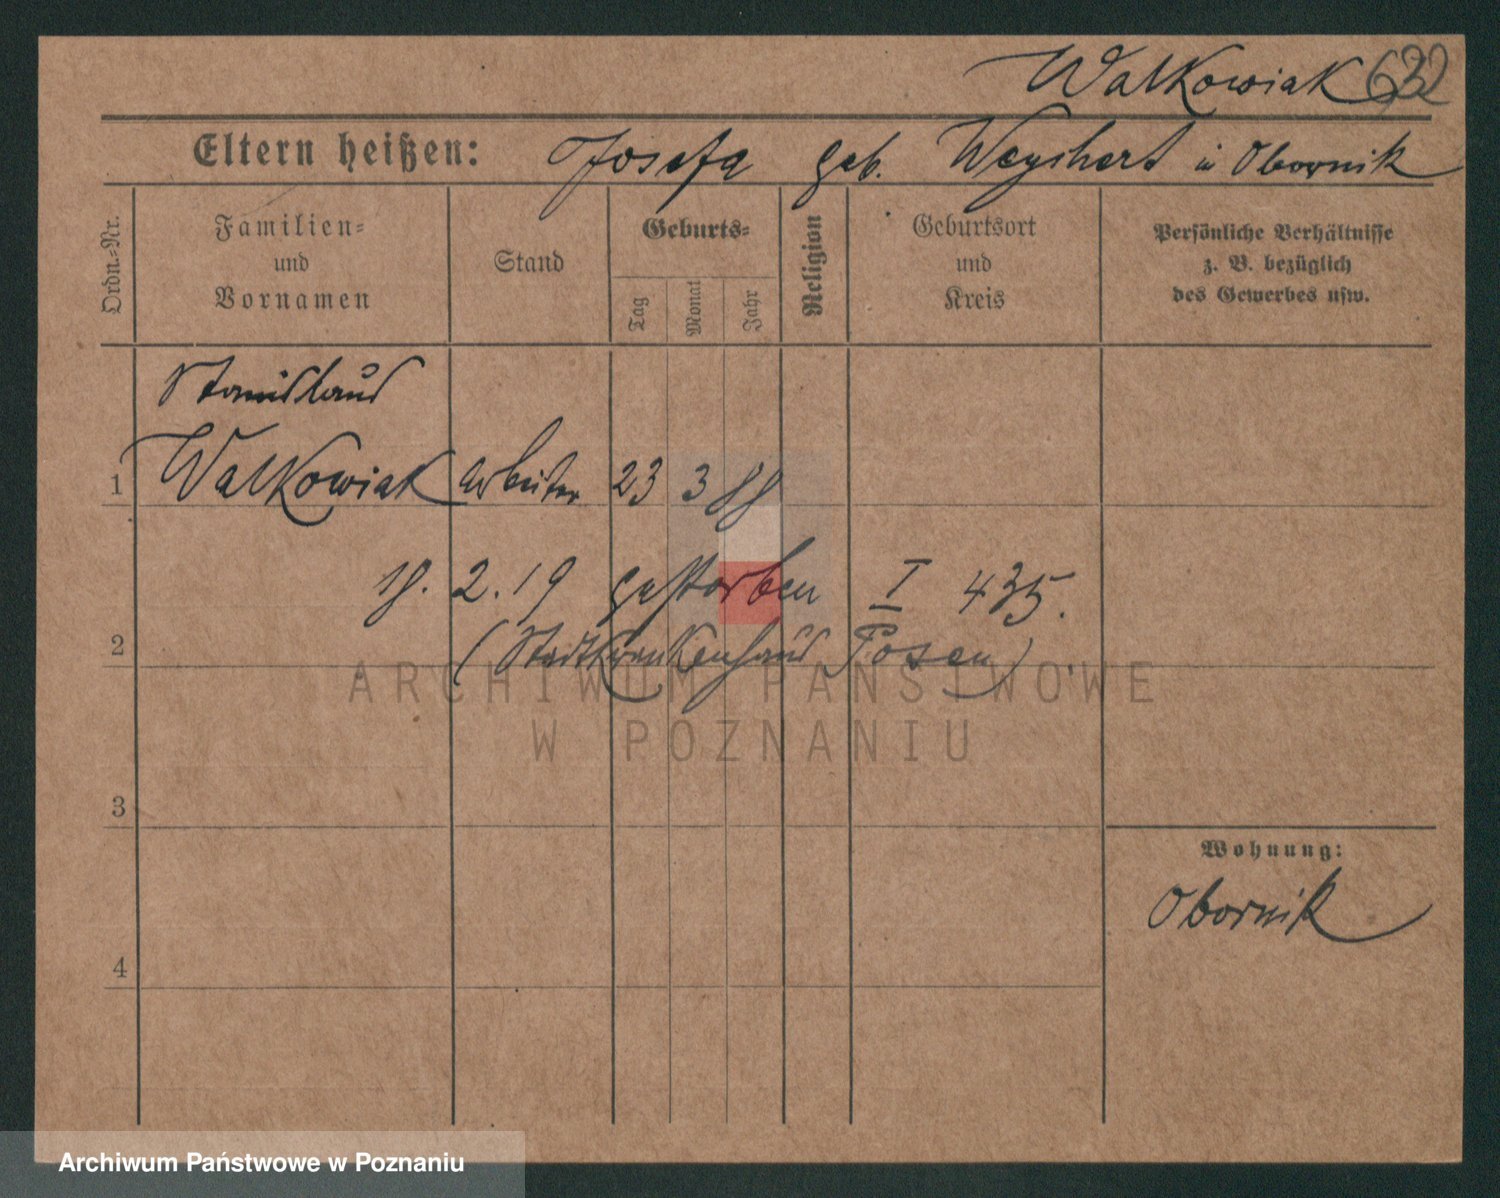 Walkowiak 632
Eltern heißen: Josefa geb. Weychert in Obornik
Ordn.-Nr.
Familien-
und
Vornamen
Stand
Geburts-
Tag
Monat
Jahr
Religion
Geburtsort
und
Kreis
Persönliche Verhältnisse
z. B. bezüglich
des Gewerbes usw.
Stanislaus
1 Walkowiak Arbeiter 23 3 88
18. 2. 19 gestorben I 435.
2 (Stadtkrankenhaus Posen).
ARCHIWUM PAŃSTWOWE
W POZNANIU
3
Wohnung:
Obornik
4
Archiwum Państwowe w Poznaniu